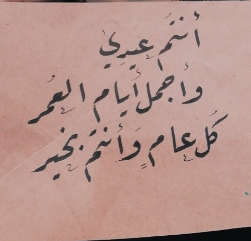 أنتُم عِيدِي
وأجمل أيام العُمر
كُل عامٍ وَأنتُم بخير